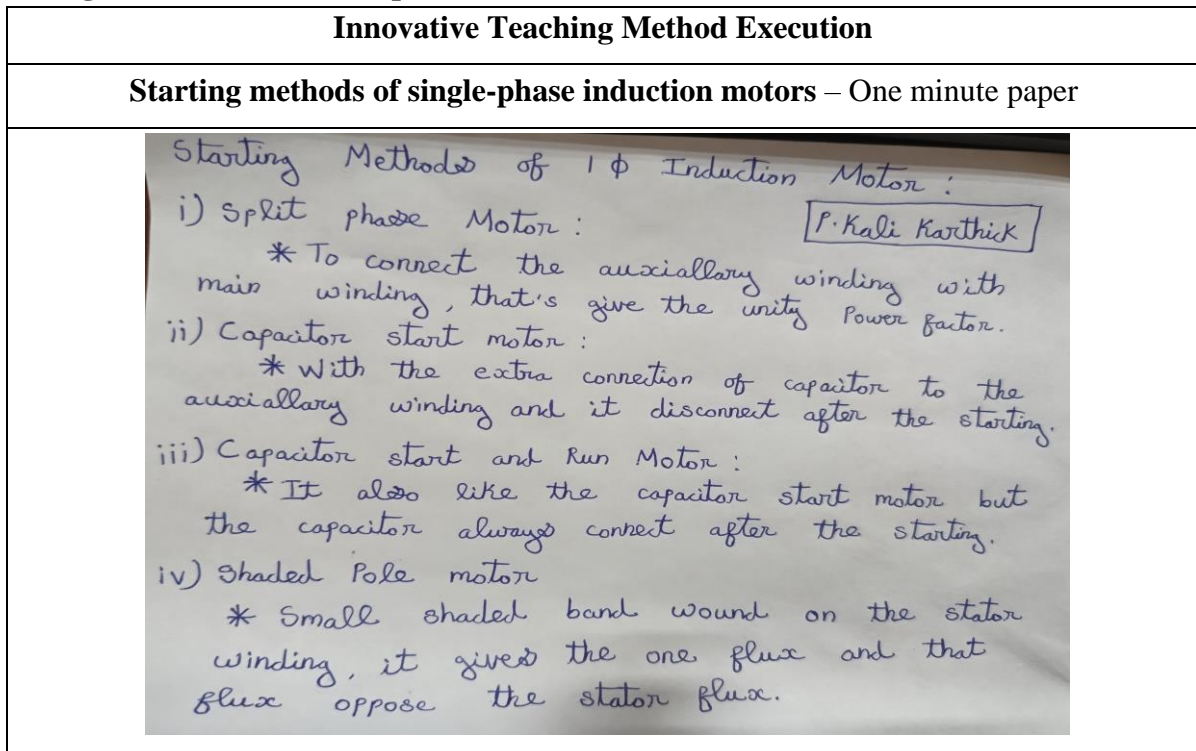 Innovative Teaching Method Execution
Starting methods of single-phase induction motors – One minute paper
Starting Methods of 1 ϕ Induction Motor :
i) Split phase Motor :
P. Kali Karthick
* To connect the auxiallary winding with
main winding, that's give the unity Power factor.
ii) Capacitor start motor :
* With the extra connection of capacitor to the
auxiallary winding and it disconnect after the starting.
iii) Capacitor start and Run Motor :
* It also like the capacitor start motor but
the capacitor always connect after the starting.
iv) Shaded Pole motor
* Small shaded band wound on the stator
winding, it gives the one flux and that
flux oppose the stator flux.